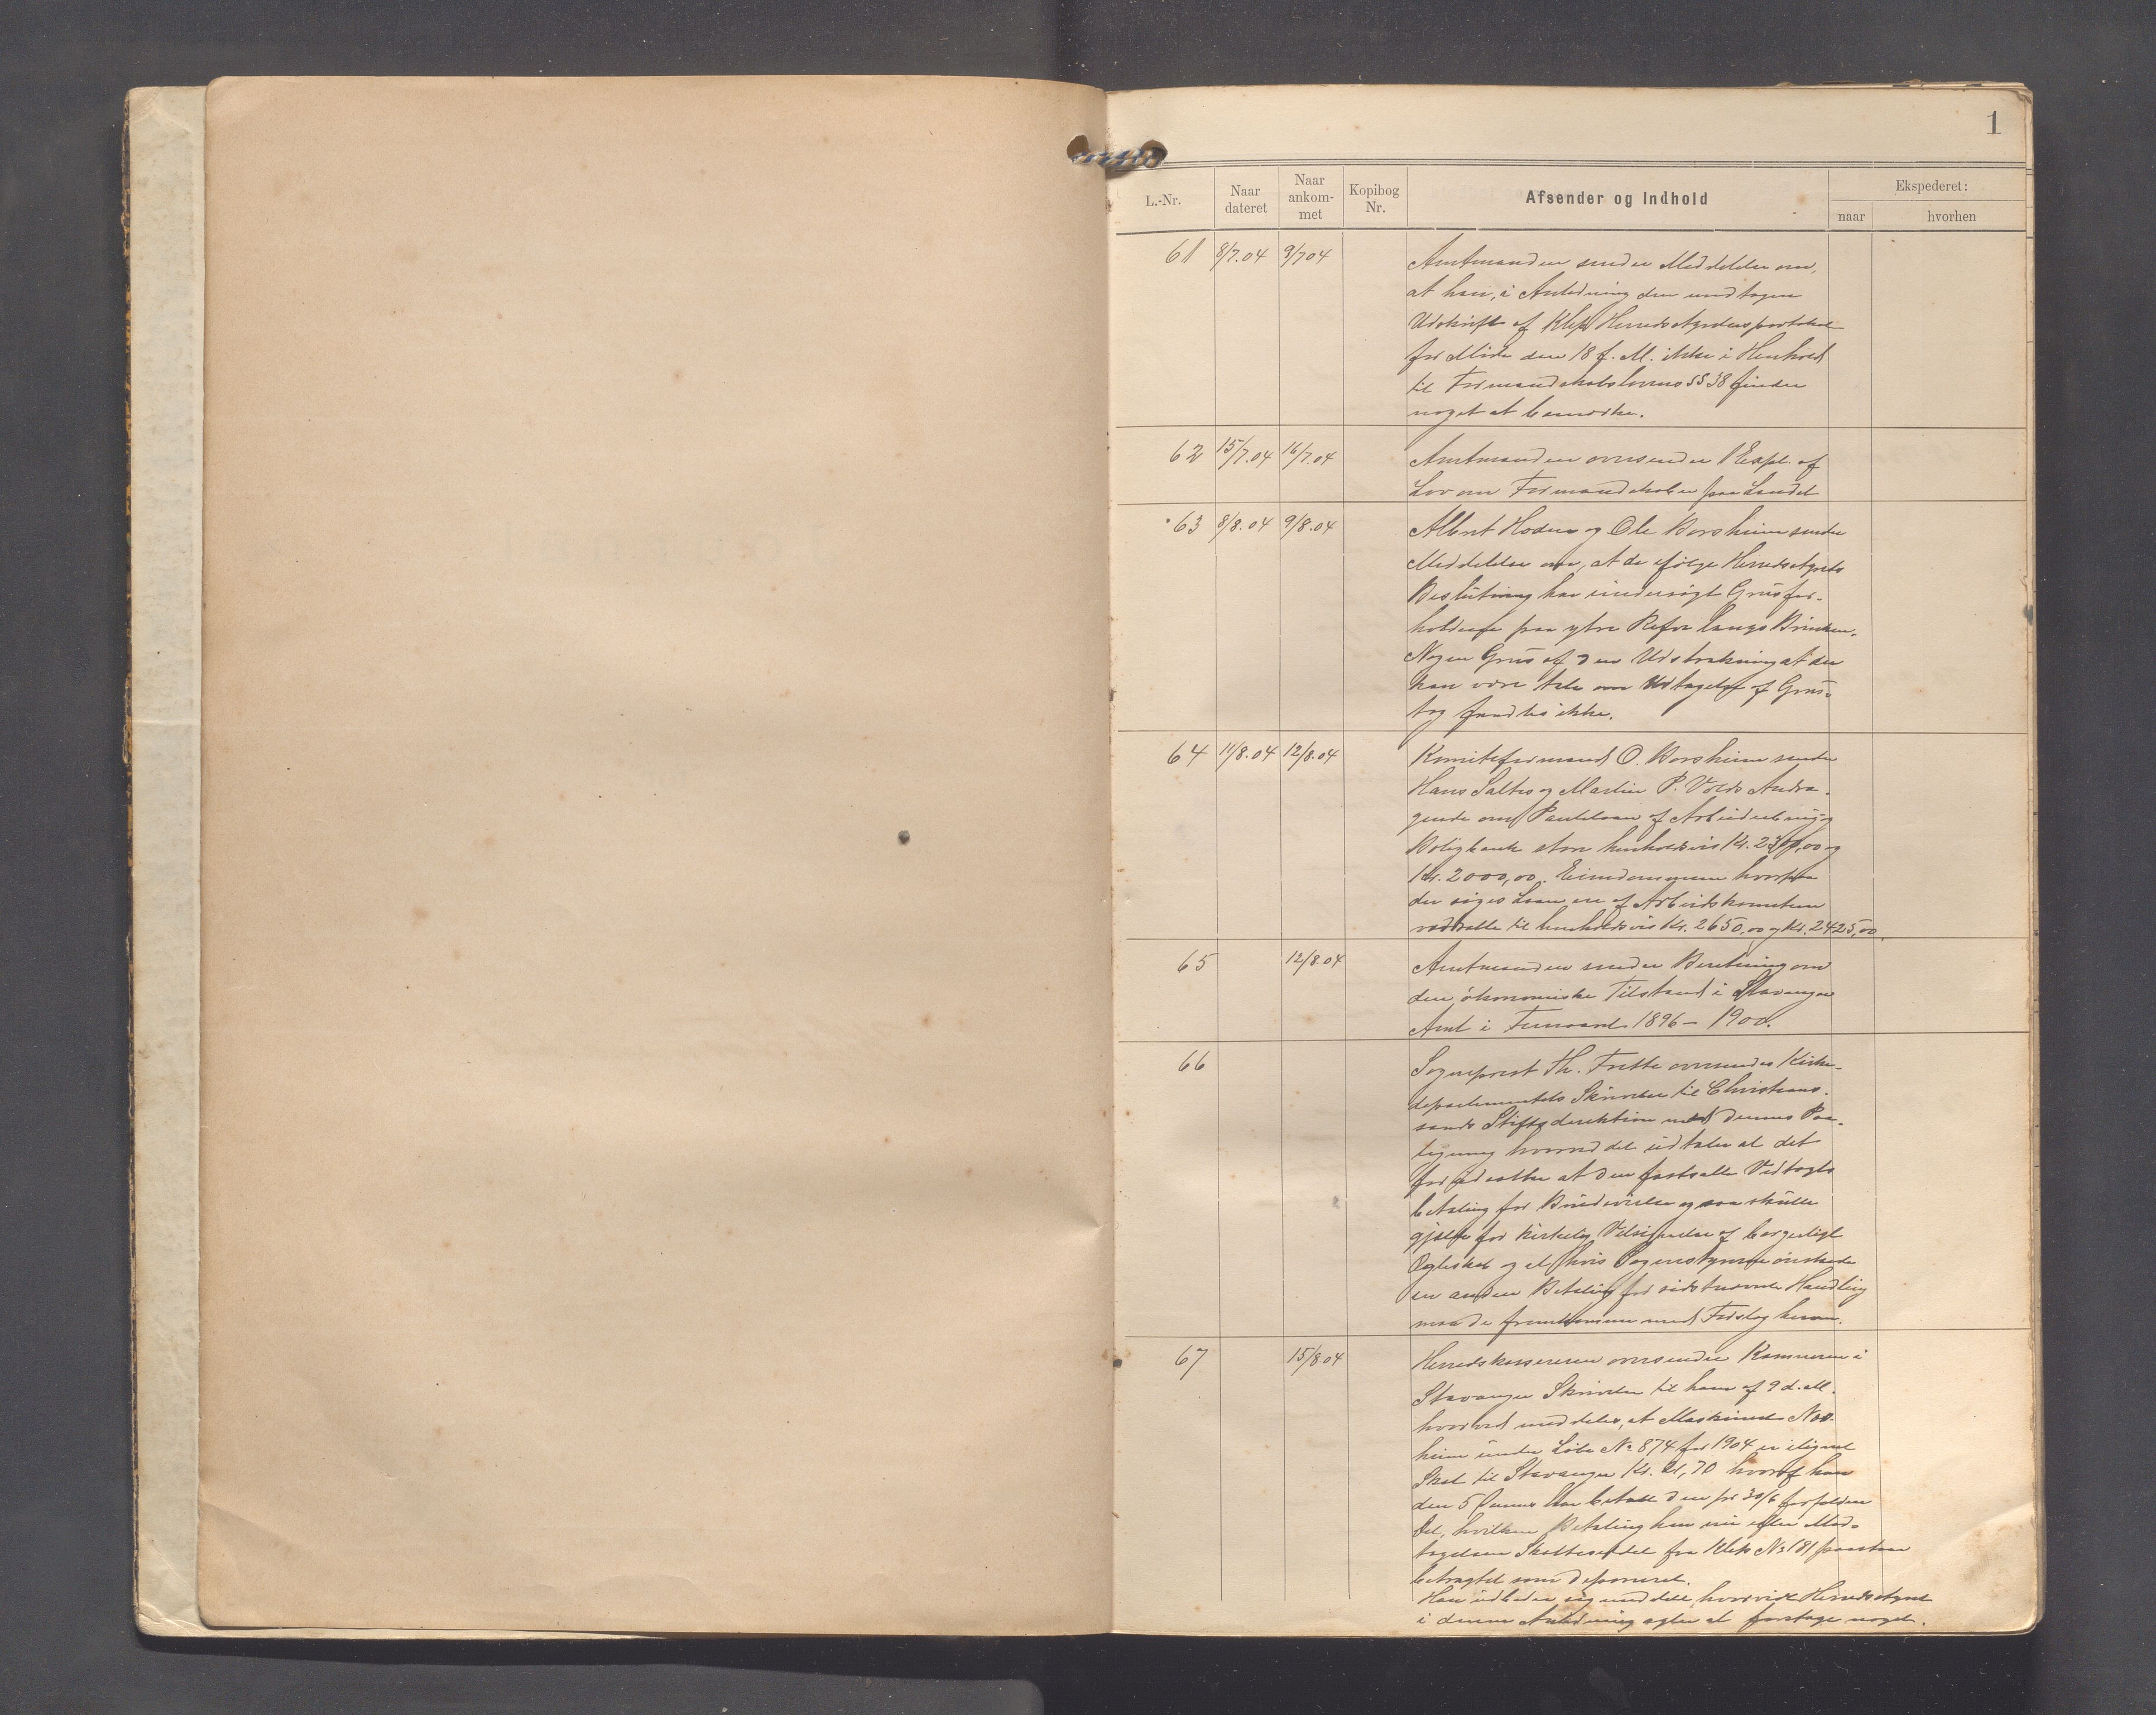 1
L.-Nr.
Naar dateret
Naar ankom- met
Kopibog Nr.
Afsender og Indhold
Ekspederet:
naar
hvorhen
61 8/7.04 9/7 04 Amtmanden sender Meddelelse om,
at han, i Anledning den modtagne
Udskrift af Klep Herredsstyrelsesprotokol
for Møde den 18 f. M. ikke i Henhold
til Formandskabslovens §§ 38 finder
noget at bemærke.
62 15/7.04 16/7.04 Amtmanden oversender 1 Expl. af
Lov om Formandskaber paa Landet
63 8/8.04 9/8.04 Albert Hodne og Ole Borsheim sender
Meddelelse om, at de ifølge Herredsstyrets
Beslutning har undersøgt Grusfor-
holdene paa ytre Refve langs Brinken.
Nogen Grus af den Udstrækning at der
kan være tale om Udtagelse af Grus-
tag fandtes ikke.
64 11/8.04 12/8.04 Komiteformand O. Borsheim sender
Hans Saltes og Martin P. Volds Andra-
gende om Pantelaan af Arbeiderbrug og
Boligbank stor henholdsvis Kr. 2300,00 og
Kr. 2000,00. Eiendommene hvorpaa
der søges Laan ere af Arbeidskomiteen
værdsatte til henholdsvis Kr. 2650,00 og Kr. 2425,00.
65 12/8.04 Amtmanden sender Beretning om
den økonomiske Tilstand i Stavanger
Amt i Femaaret 1896 – 1900.
66 Sogneprest Th. Frette oversender Kirke-
departementets Skrivelse til Christians-
sands Stiftsdirektion med dennes Paa-
tegning hvorved det udtaler at det
forudsætter at den fastsatte Vedtægts
betaling for Brudevielse ogsaa skulle
gjælde for kirkelig Velsignelse af borgerligt
Ægteskab og at hvis Sognestyrerne ønskede
en anden Betaling for sidstnævnte Handling
maa de fremkomme med Forslag herom.
67 15/8.04 Herredskassereren oversender Kæmneren i
Stavanger Skrivelse til ham af 9 d. M.
hvorved meddeles, at Maskinist
under Løbe No 874 for 1904 er ilignet
Skat til Stavanger Kr. 21,70 hvoraf han
den 5 dennes har betalt den pr 30/6 forfaldne
Del, hvilken Betaling han nu efter Mod-
tagelsen Skatteseddel fra Klep No 181
betragtet som deponeret.
Han udbeder sig meddelt, hvorvidt Herredsstyret
i denne Anledning agter at foretage noget.